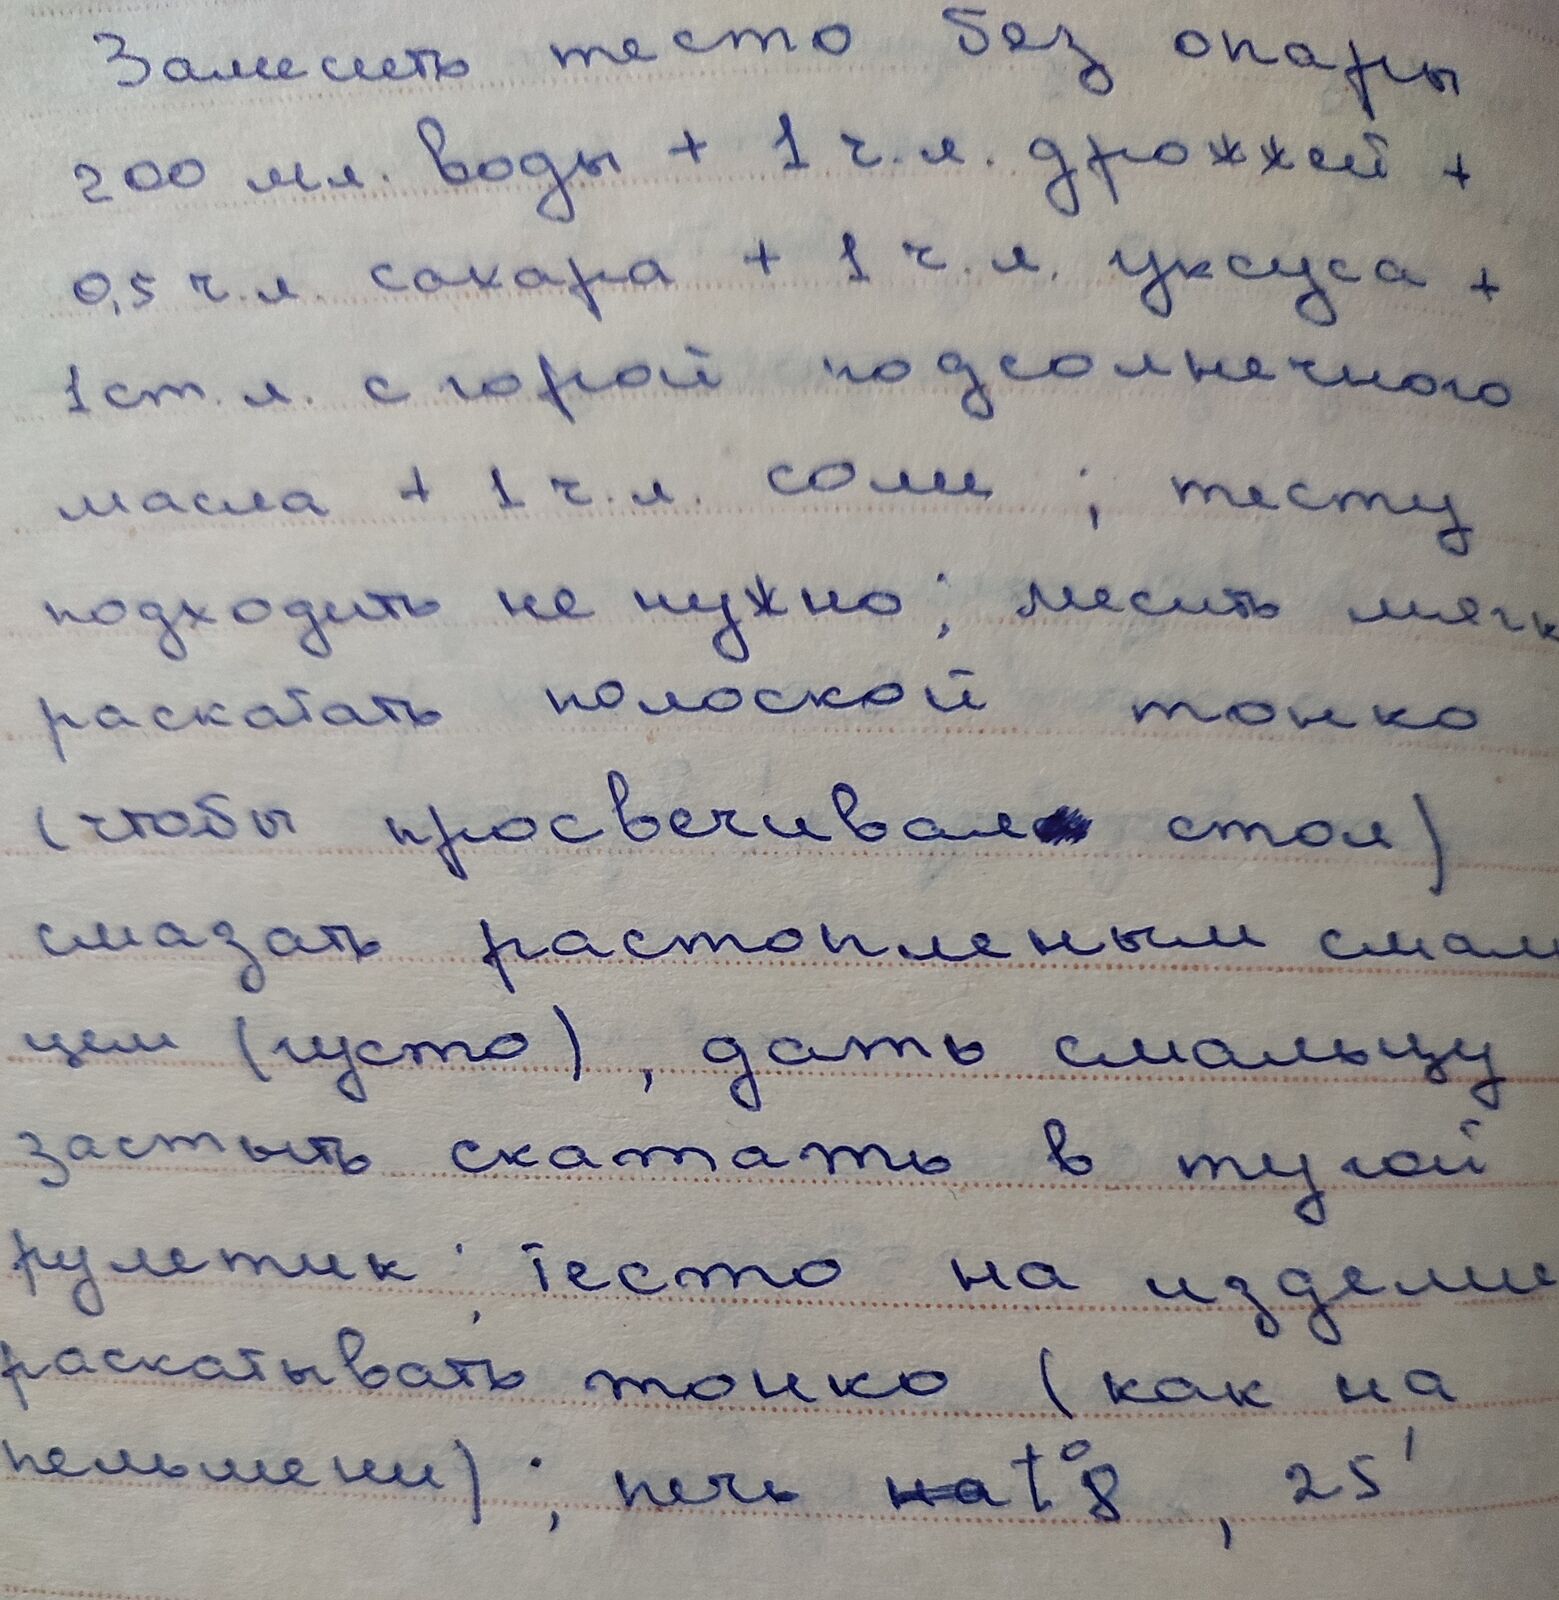 Замесить тесто без опары
200 мл. воды + 1 ч.л. дрожжей +
0,5 ч.л. сахара + 1 ч.л. уксуса +
1 ст.л. с горой подсолнечного
масла + 1 ч.л. соли ; тесту
подходить не нужно ; месить мягк
раскатать полоской тонко
(чтобы просвечивал стол)
смазать растопленым смал
цем (густо) , дать смальцу
застыть скатать в тугой
рулетик ; тесто на издели
раскатывать тонко (как на
пельмени) ; печь на t° 8 , 25'